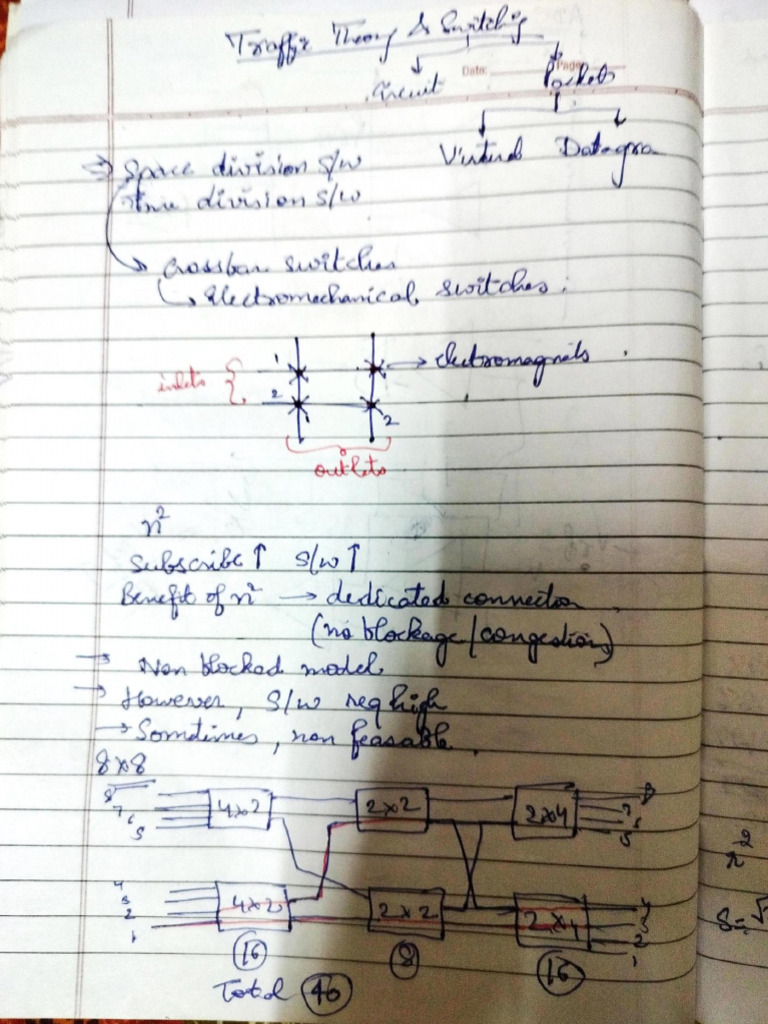 Traffic Theory & Switching
Date: Page:
Circuit Packets
Virtual Datagra
⇒ Space division S/w
Time division S/w
→ Crossbar switches
↳ Electromechanical switches.
1 → electromagnets
inlets {
2
1 2
outlets
n²
Subscribe ↑ S/w ↑
Benefit of n² → dedicated connection
(no blockage/congestion)
→ Non blocked model
→ However, S/w req high
→ Sometimes, non feasable
8×8
8 4×2 2×2 2×4 8
7 7
6 6
5 5
4 4×2 2×2 2×4 4
3 3
2 2
1 1
16 8 16
Total 40
n²
S=√